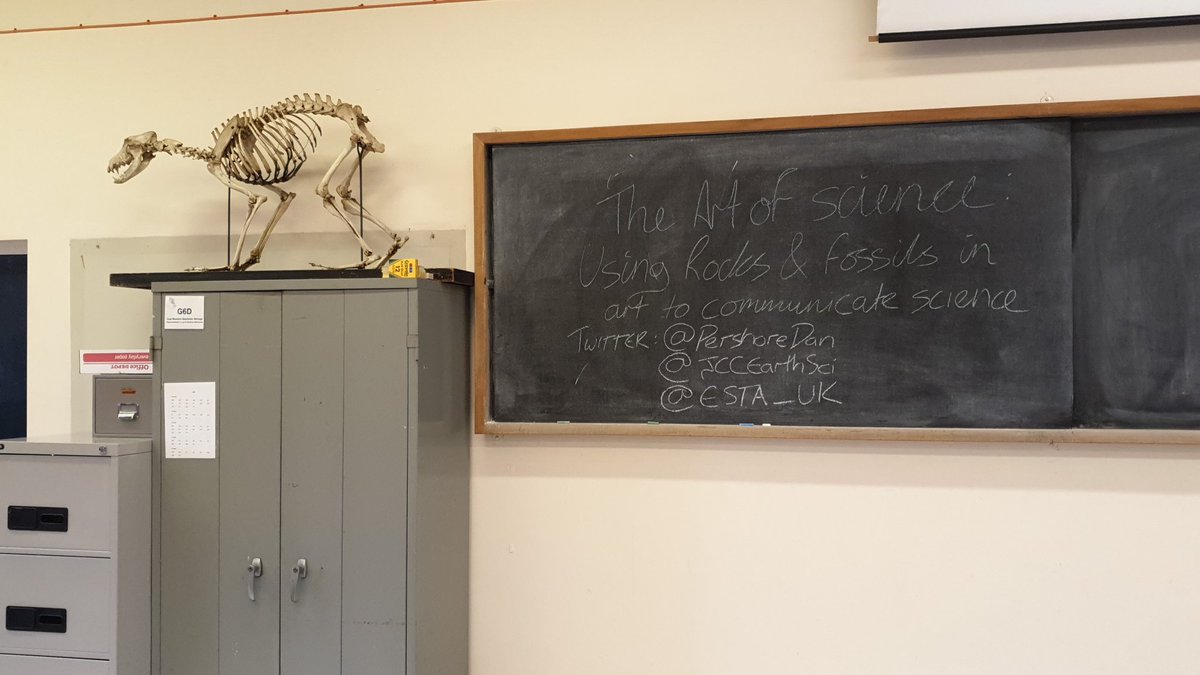 The Art of science:
Using Rocks & Fossils in
art to communicate science
TWITTER: @PershoreDan
@JCCEarthSci
@ESTA_UK
G6D
Office DEPOT
everyday paper
12